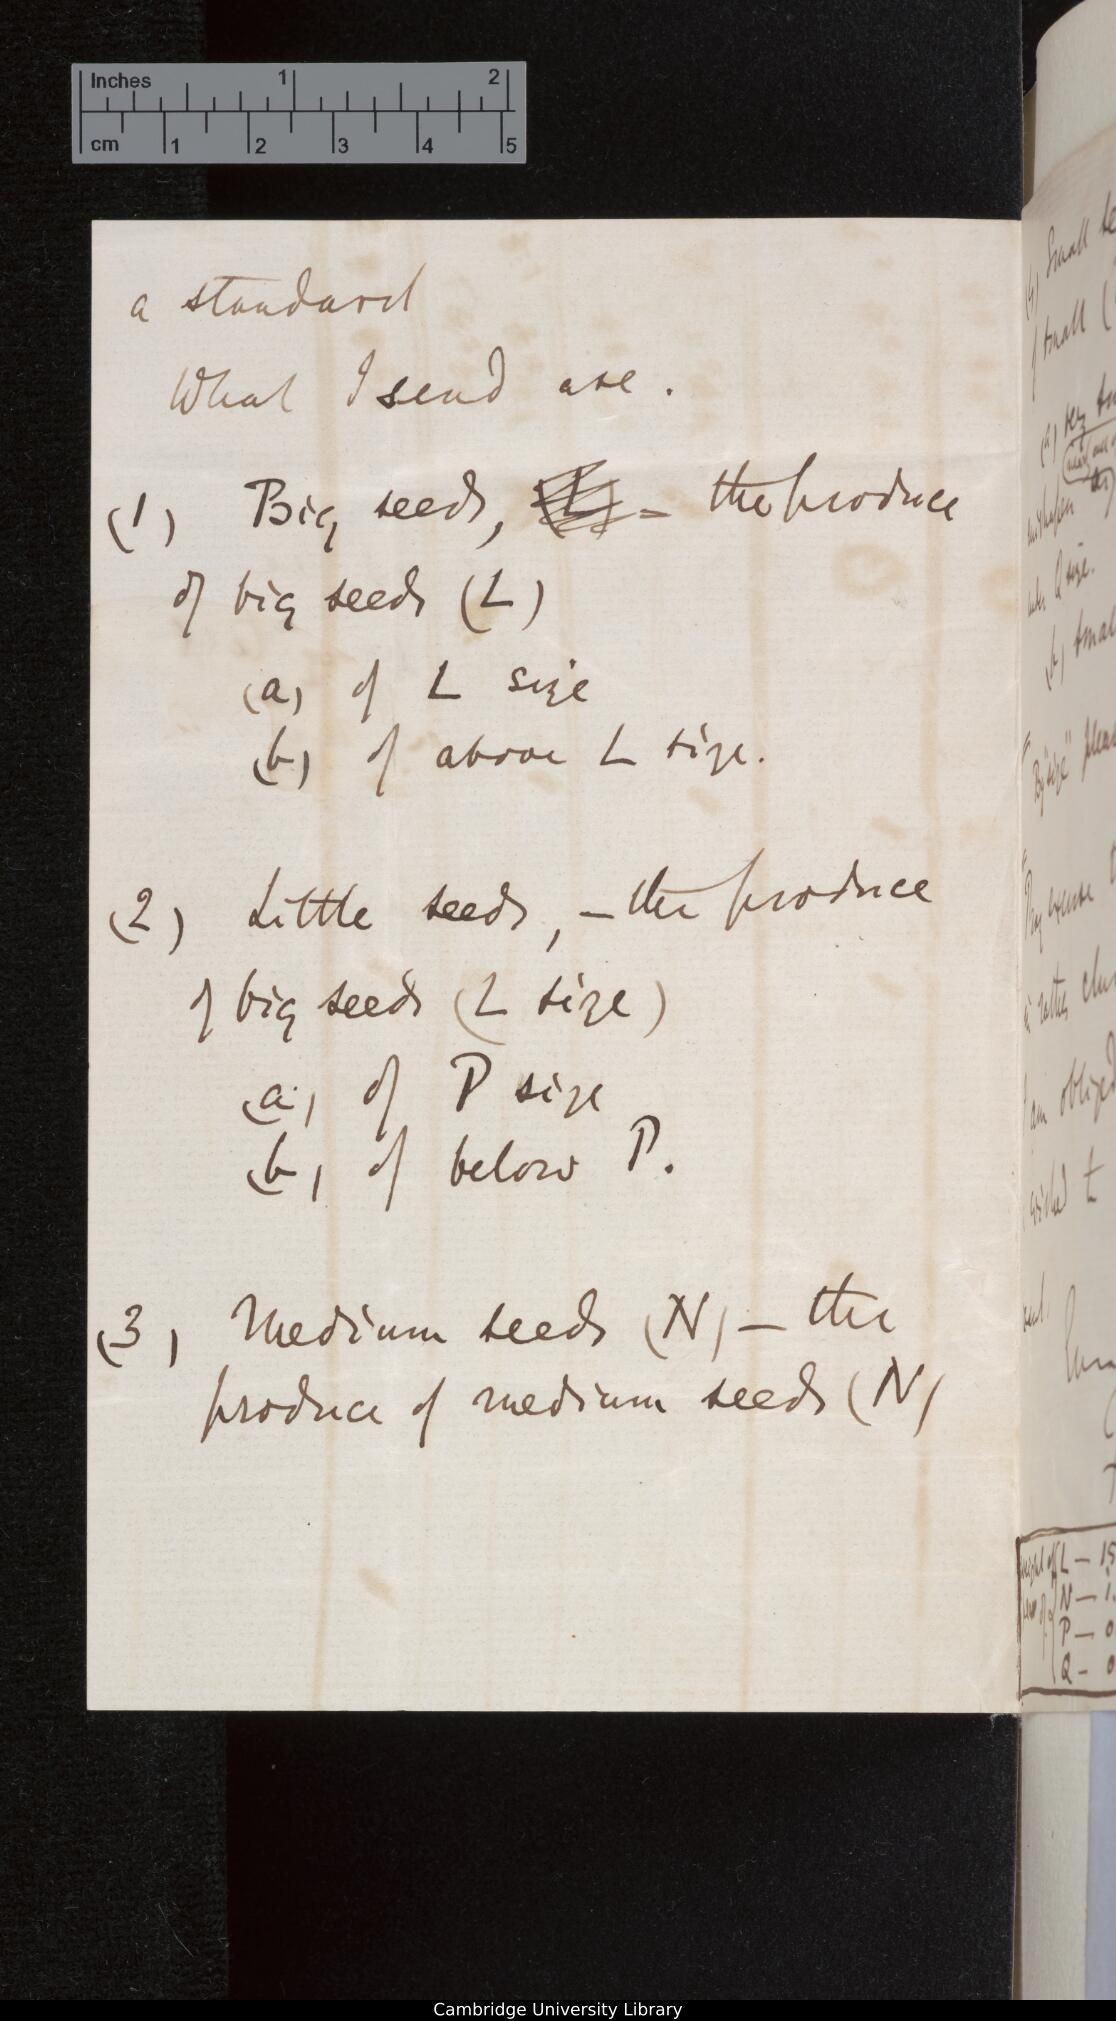 Inches 1 2
cm 1 2 3 4 5
a standard
What I send are.
(1) Big seeds, – the produce
of big seeds (L)
(a) of L size
(b) of above L size.
(2) Little seeds, – the produce
of big seeds (L size)
(a) of P size
(b) of below P.
(3) Medium seeds (N) – the
produce of medium seeds (N)
Small
small (
Q size.
"size"
excuse
rather
am obliged
L – 15
N – 1.
P – 0
Q – 0
Cambridge University Library